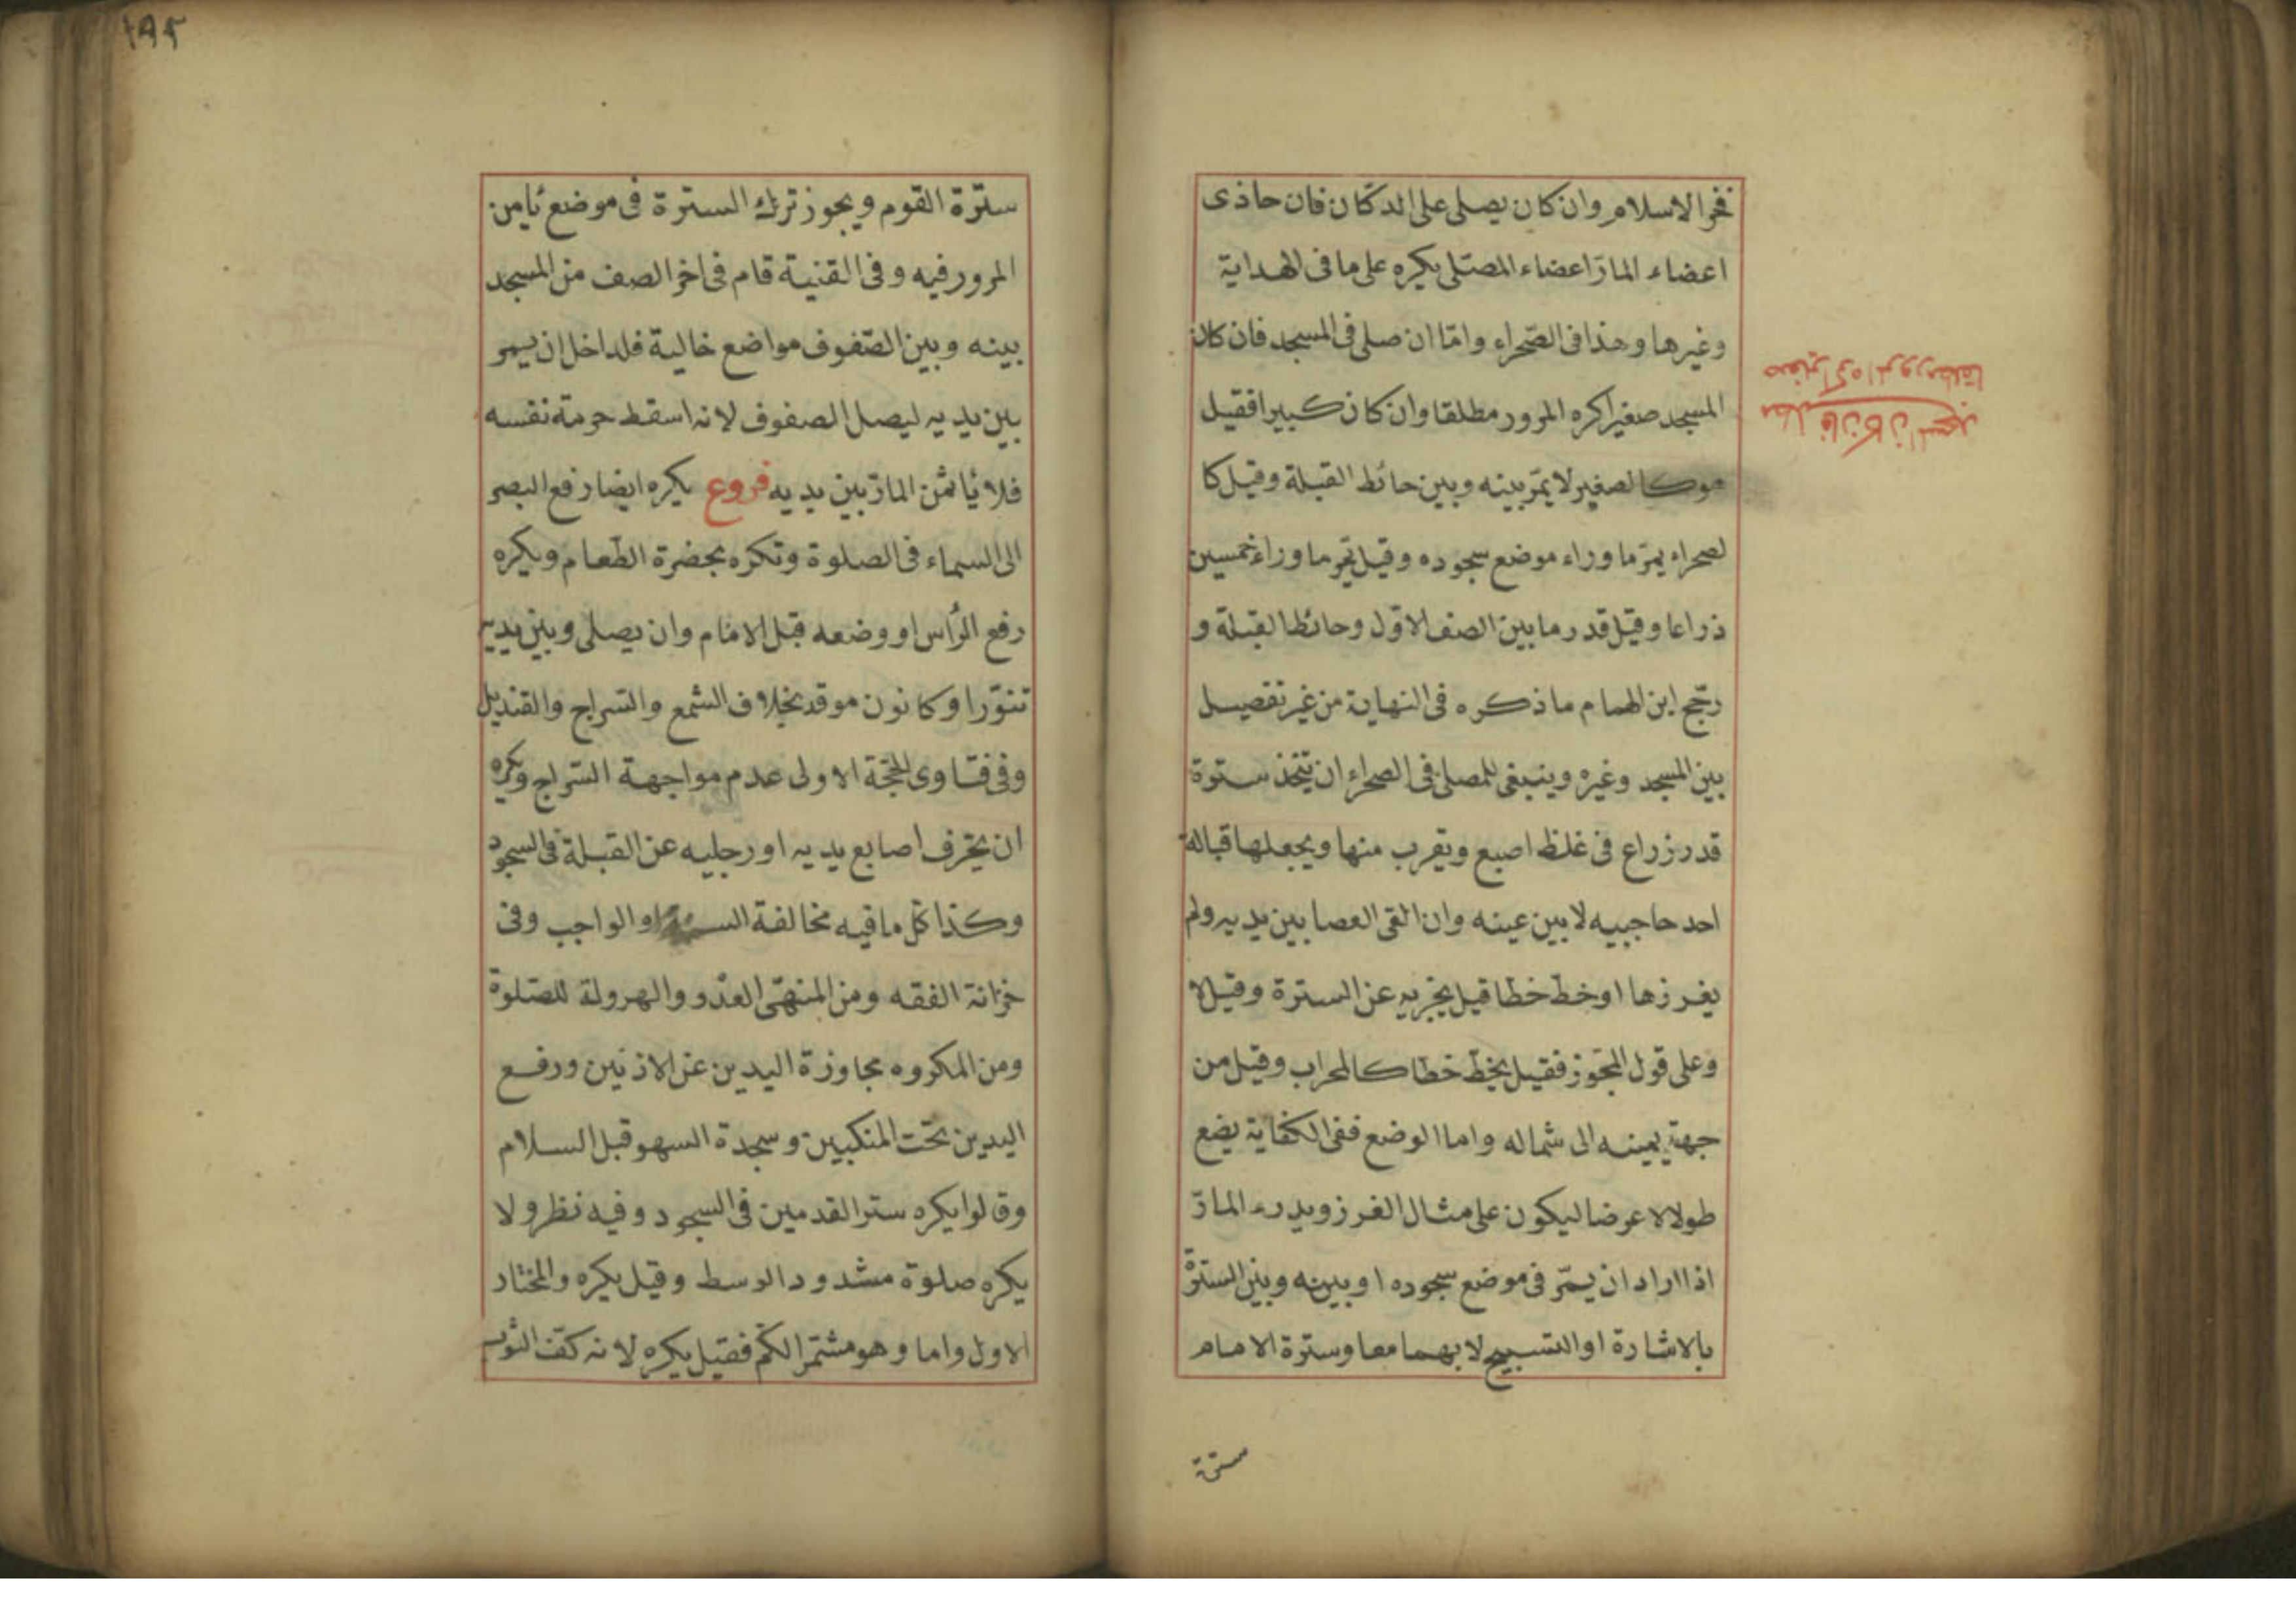 فخر الاسلام وان كان يصلى على الدكان فان حاذى
اعضاء المارّ اعضاء المصلّى يكره على ما فى الهداية
وغيرها وهذا فى الصّحراء وامّا ان صلى فى المسجد فان كان
المسجد صغيرا كره المرور مطلقا وان كان كبيرا فقيل
هو كالصغير لا يمّر بينه وبين حائط القبلة وقيل كا
لصحراء يمرّ ما وراء موضع سجوده وقيل يمّر ما وراء خمسين
ذراعا وقيل قدر ما بين الصف الاوّل وحائط القبلة و
رجّح ابن الهمام ما ذكره فى النهاية من غير تفصيل
بين المسجد وغيره وينبغى للمصلى فى الصحراء ان يتّخذ سترة
قدر زراع فى غلظ اصبع ويقرب منها ويجعلها قبالة
احد حاجبيه لا بين عينه وان القى العصا بين يديه ولم
يغرزها او خطّ خطا قيل يجزيه عن السترة وقيل لا
وعلى قول المجّوز فقيل يخطّ خطّا كالمحراب وقيل من
جهة يمينه الى شماله واما الوضع ففى الكفاية يضع
طولا لا عرضا ليكون على مثال الغرز ويدرء المارّ
اذا اراد ان يمّر فى موضع سجوده او بينه وبين السترة
بالاشارة او التسبيح لا بهما معا وسترة الامام
سترة
مطلب فان كان المسجد
صغيرا كره المرور مطلقا
١٩٢
سترة القوم ويجوز ترك السترة فى موضع يأمن
المرور فيه وفى القنية قام فى اخر الصف من المسجد
بينه وبين الصّفوف مواضع خالية فلداخل ان يمر
بين يديه ليصل الصفوف لانه اسقط حرمة نفسه
فلا يأثمّن المارّ بين يديه فروع يكره ايضا رفع البصر
الى السماء فى الصلوة وتكره بحضرة الطّعام ويكره
رفع الرّأس او وضعه قبل الامام وان يصلى وبين يديه
تنوّرا وكانون موقد بخلاف الشّمع والسّراج والقنديل
وفى فتاوى الحجّة الاولى عدم مواجهة السّراج ويكره
ان يحّرف اصابع يديه او رجليه عن القبلة فى السجود
وكذا كلّ ما فيه مخالفة السنة او الواجب وفى
خزانة الفقه ومن المنهّى العدو والهرولة للصّلوة
ومن المكروه مجاوزة اليدين عن الاذنين ورفع
اليدين تحت المنكبين وسجدة السهو قبل السلام
وقالوا يكره ستر القدمين فى السجود وفيه نظر ولا
يكره صلوة مشدود الوسط وقيل يكره والمختار
الاول واما وهو مشمّر الكمّ فقيل يكره لانه كفّ الثوب